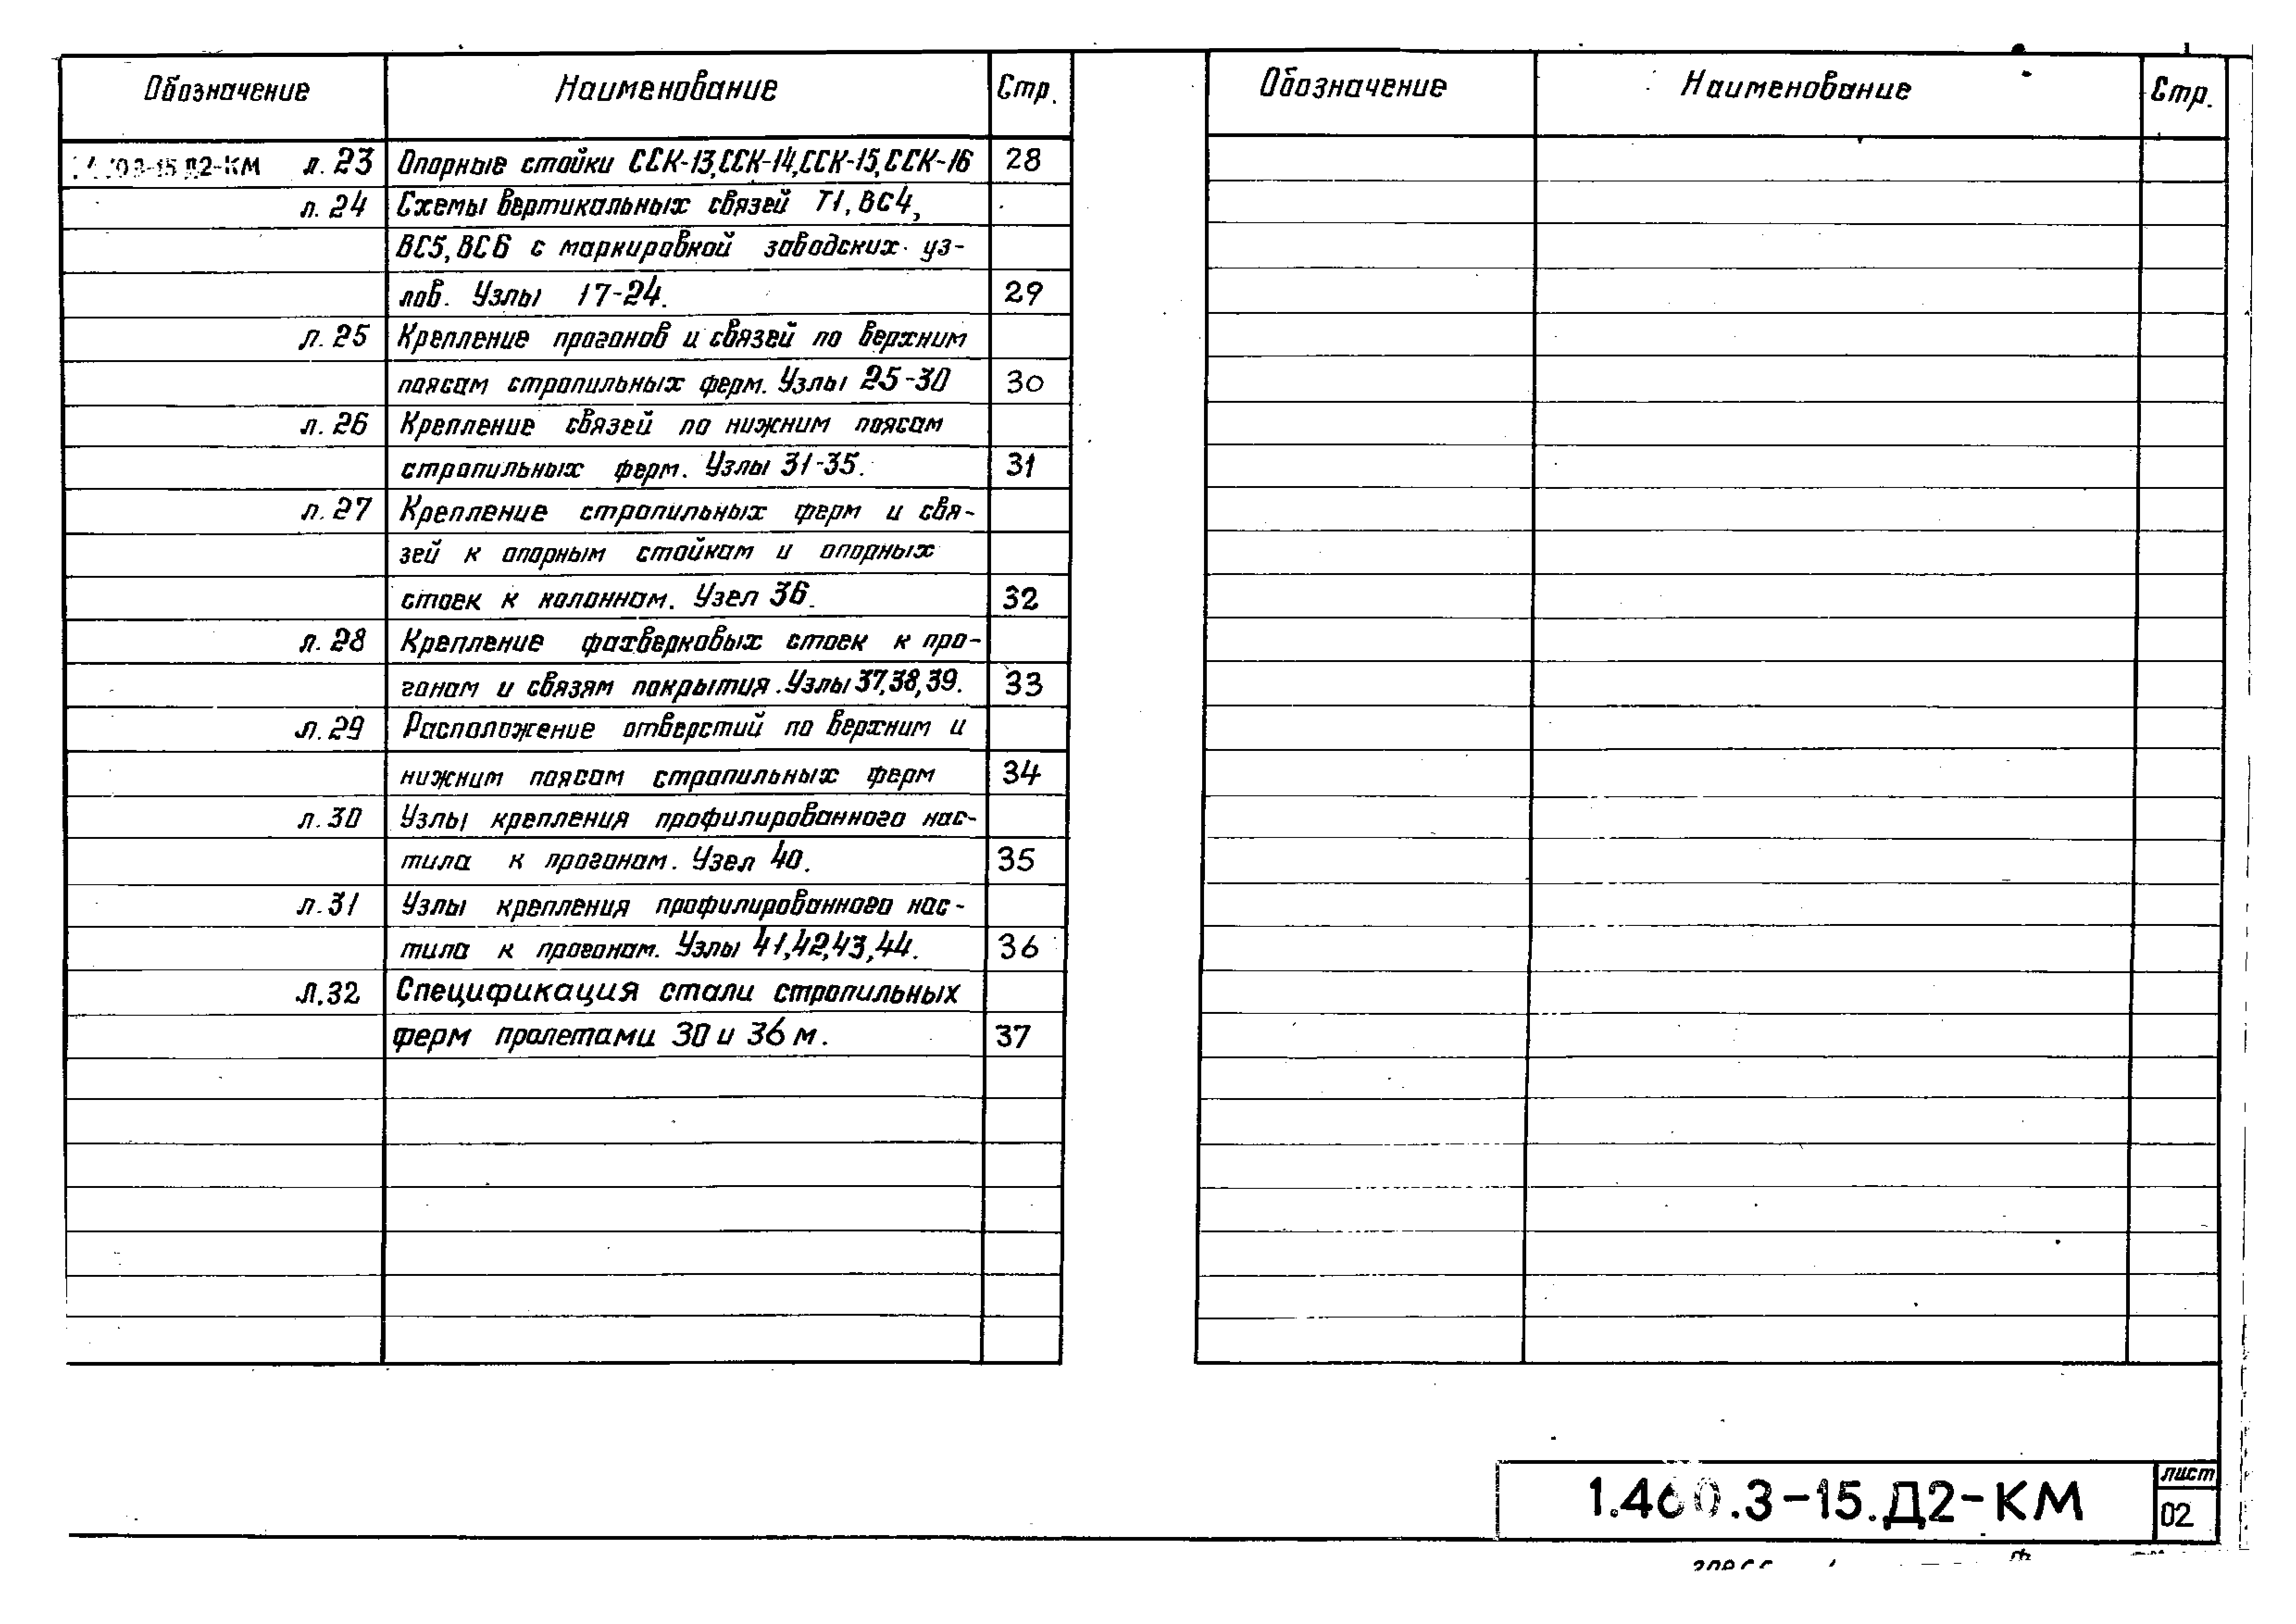 Обозначение Наименование Стр.
л. 23 Опорные стойки ССК-13, ССК-14, ССК-15, ССК-16 28
л. 24 Схемы вертикальных связей Т1, ВС4,
ВС5, ВС6 с маркировкой заводских уз-
лов. Узлы 17-24. 29
л. 25 Крепление прогонов и связей по верхним
поясам стропильных ферм. Узлы 25-30 30
л. 26 Крепление связей по нижним поясам
стропильных ферм. Узлы 31-35. 31
л. 27 Крепление стропильных ферм и свя-
зей к опорным стойкам и опорных
стоек к колоннам. Узел 36. 32
л. 28 Крепление фахверковых стоек к про-
гонам и связям покрытия. Узлы 37, 38, 39. 33
л. 29 Расположение отверстий по верхним и
нижним поясам стропильных ферм 34
л. 30 Узлы крепления профилированного нас-
тила к прогонам. Узел 40. 35
л. 31 Узлы крепления профилированного нас-
тила к прогонам. Узлы 41, 42, 43, 44. 36
Л. 32 Спецификация стали стропильных
ферм пролетами 30 и 36 м. 37
Обозначение Наименование Стр.
1.460.3-15.Д2-КМ
лист
02